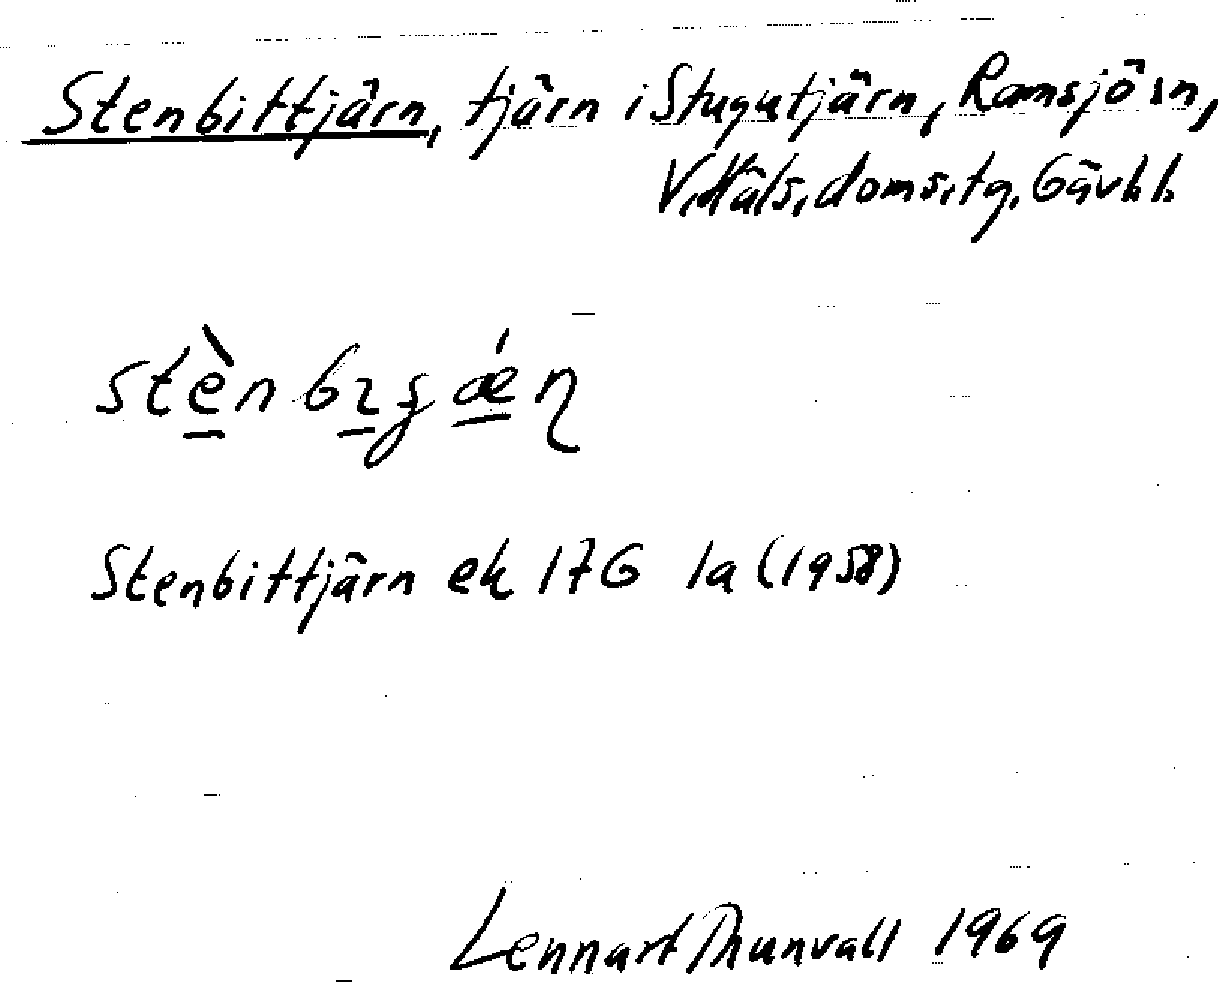 Stenbittjärn, tjärn i Stugutjärn, Ramsjö sn,
V. Häls. doms. tg. Gävb. l.
Stenbittjärn ek 17G 1a (1958)
Lennart Thunvall 1969